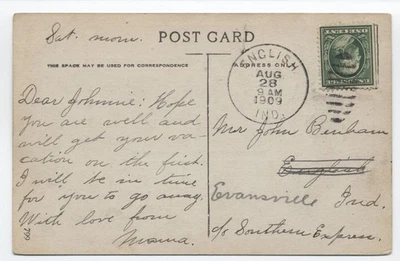 Sat. morn.
POST CARD
THIS SPACE MAY BE USED FOR CORRESPONDENCE
ADDRESS ONLY
ENGLISH
AUG
28
8AM
1909
IND.
Dear Johnnie: Hope
you are well and
will get your va-
cation on the first.
I will be in time
for you to go away.
With love from
Mama.
Mr John Benham
English
Evansville Ind.
c/o Southern Express.